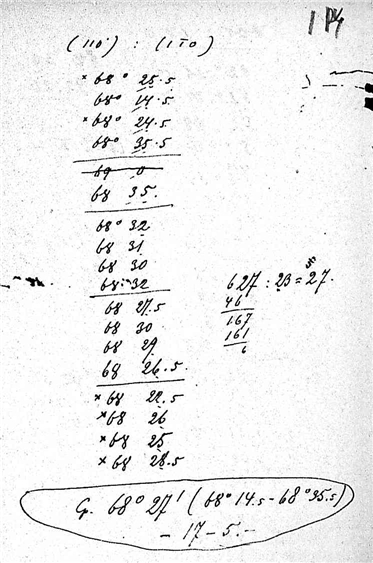 1 P4
(110) : (1̄10)
× 68° 25.5
68° 14.5
× 68° 24.5
68° 35.5
69 0
68 35.
68° 32
68 31
68 30
68° 32
68 27.5
68 30
68 29
68 26.5
627 : 23 = 27.
46
167
161
6
× 68 22.5
× 68 26
× 68 25
× 68 28.5
Gr. 68° 27' (68° 14.5 - 68° 35.5)
- 17 - 5. -